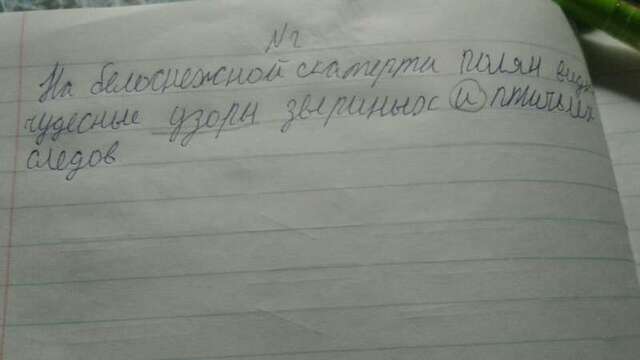 №2
На белоснежной скатерти полян
чудесные узоры звериных и птичьих
следов